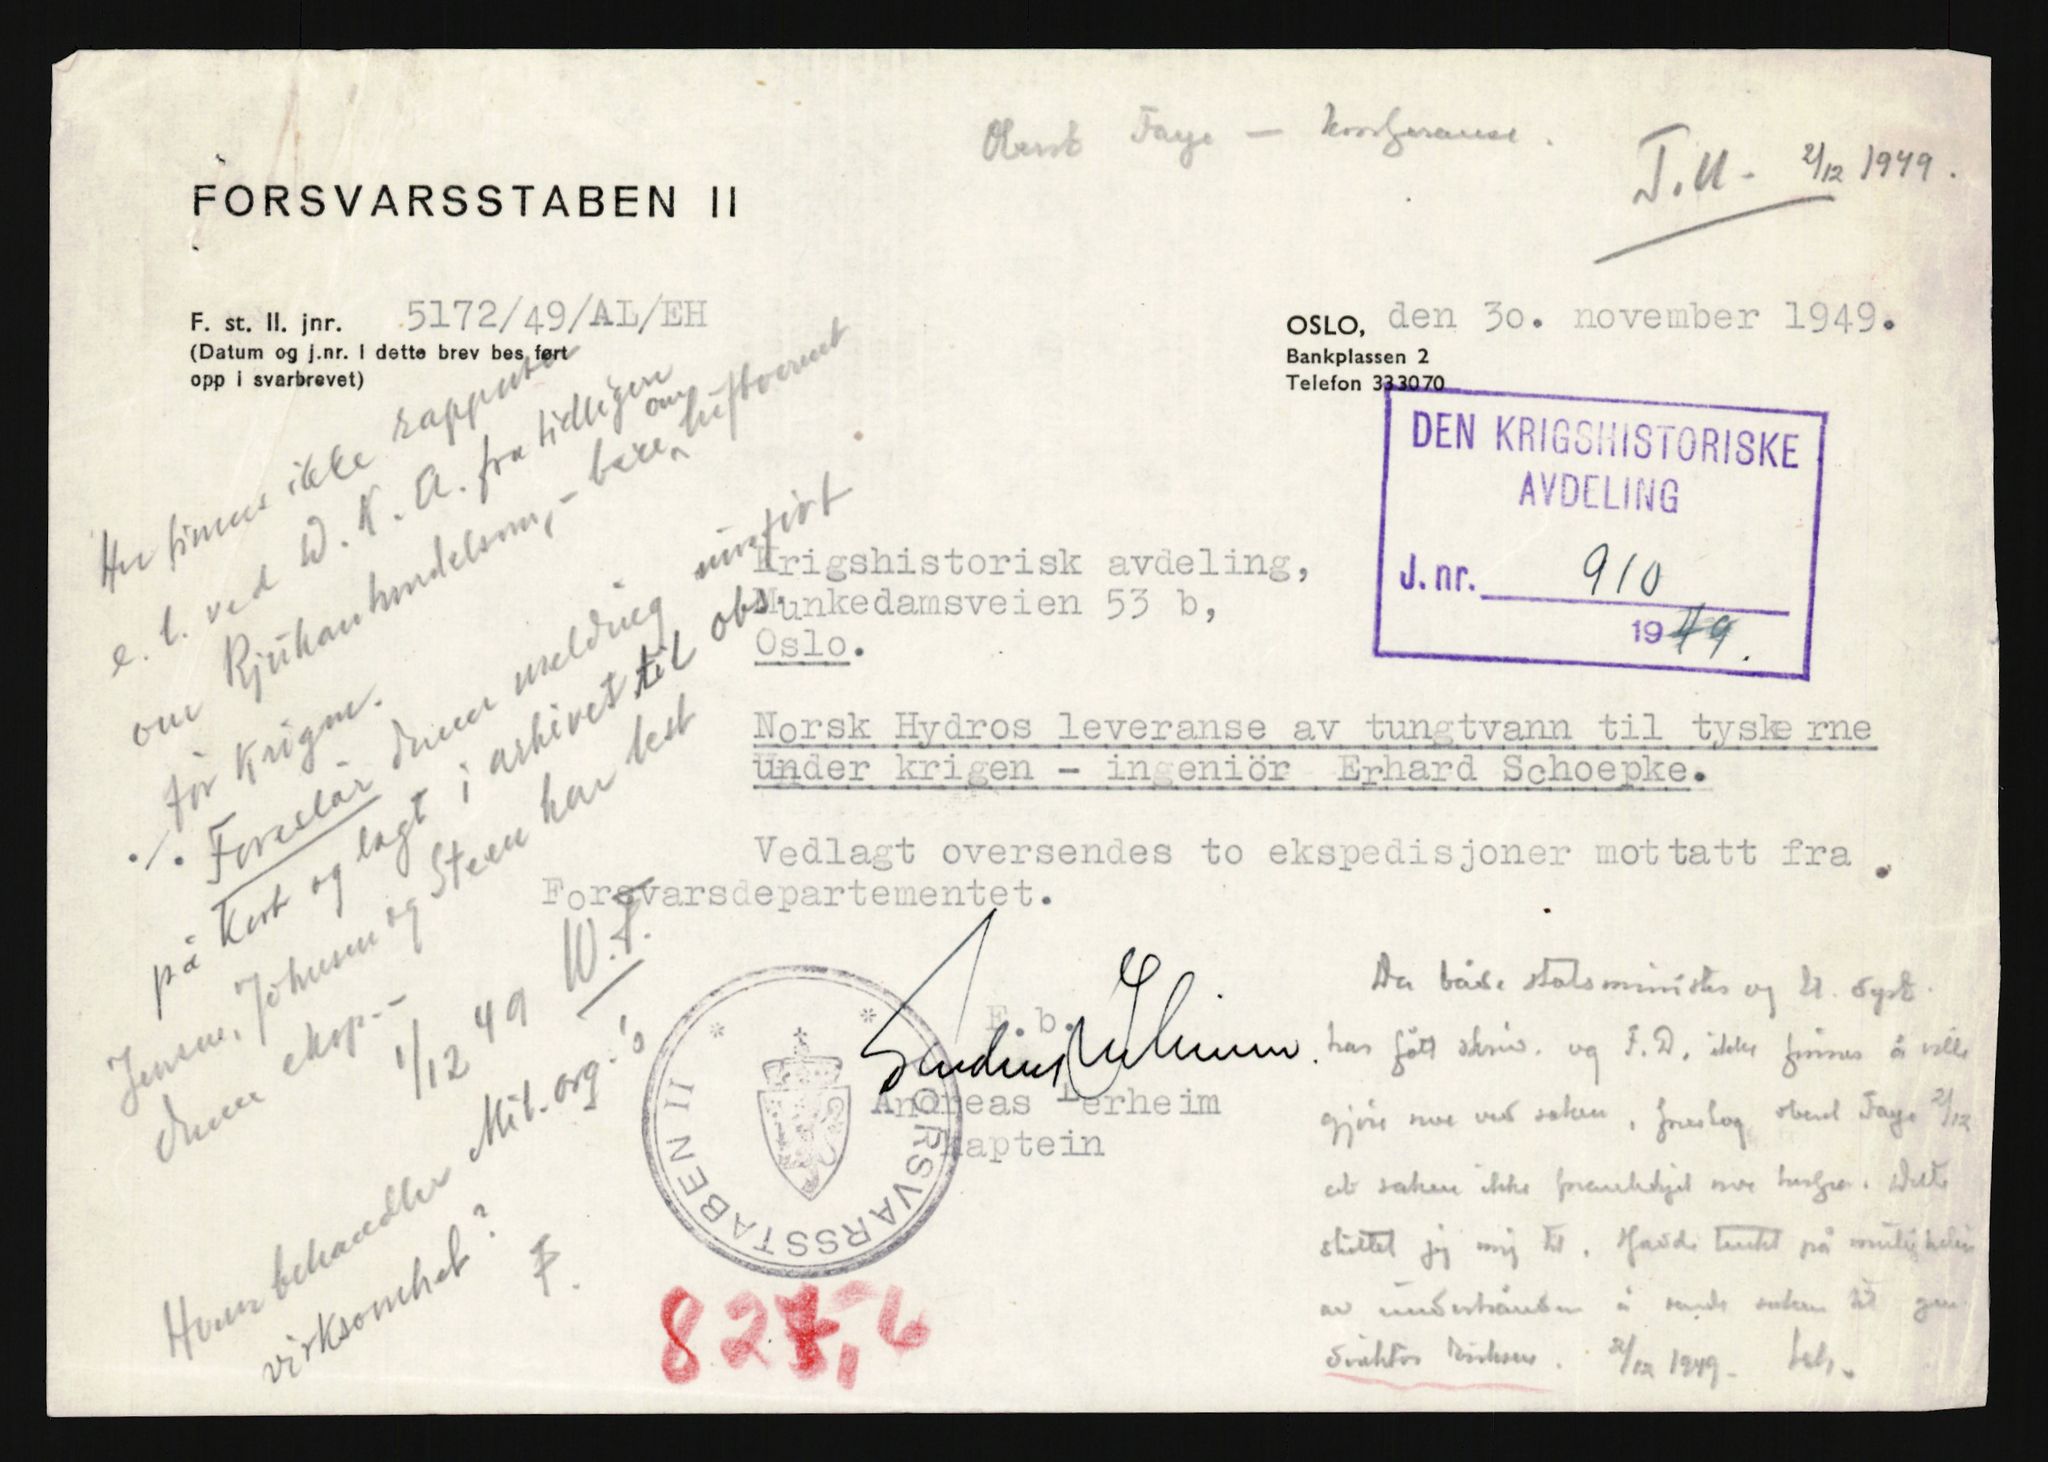 Oberst Faye — konferanse.
T.U. 2/12 1949.
FORSVARSSTABEN II
F. st. II. jnr. 5172/49/AL/EH
(Datum og j.nr. i dette brev bes ført
opp i svarbrevet)
OSLO, den 30. november 1949.
Bankplassen 2
Telefon 333070
DEN KRIGSHISTORISKE
AVDELING
J. nr. 910
1949.
Her finnes ikke rapporter
e. l. ved W. K. A. fra tidligere
om Rjukanhendelsen, – bare om luftvernet
før krigen.
./. Foreslår denne melding innført
på kort og lagt i arkivet til obs.
Jensen, Johnsen og Steen har lest
denne eksp.-
1/12 49 W.F.
Hvem behandler Mil.org.'s
virksomhet?
F.
Krigshistorisk avdeling,
Munkedamsveien 53 b,
Oslo.
Norsk Hydros leveranse av tungtvann til tyskerne
under krigen - ingeniör Erhard Schoepke.
Vedlagt oversendes to ekspedisjoner mottatt fra
Forsvarsdepartementet.
E.b.
Andreas Lerheim
kaptein
FORSVARSSTABEN II
Da både statsminister og
har fått skriv. og F.D. ikke finnes å ville
gjøre noe ved saken, foreslog oberst Faye 2/12
at saken ikke foranlediget noe herfra. Dette
sluttet jeg mig til. Hadde tenkt på muligheten
av underhånden å sende saken til gen.
direktør Eriksen. 2/12 1949.
827,6